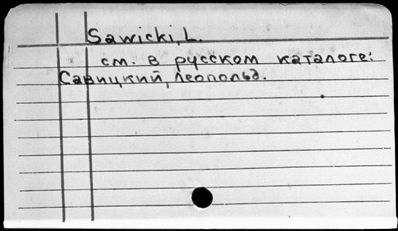 Sawicki, L.
см. в русском каталоге:
Савицкий, Леопольд.